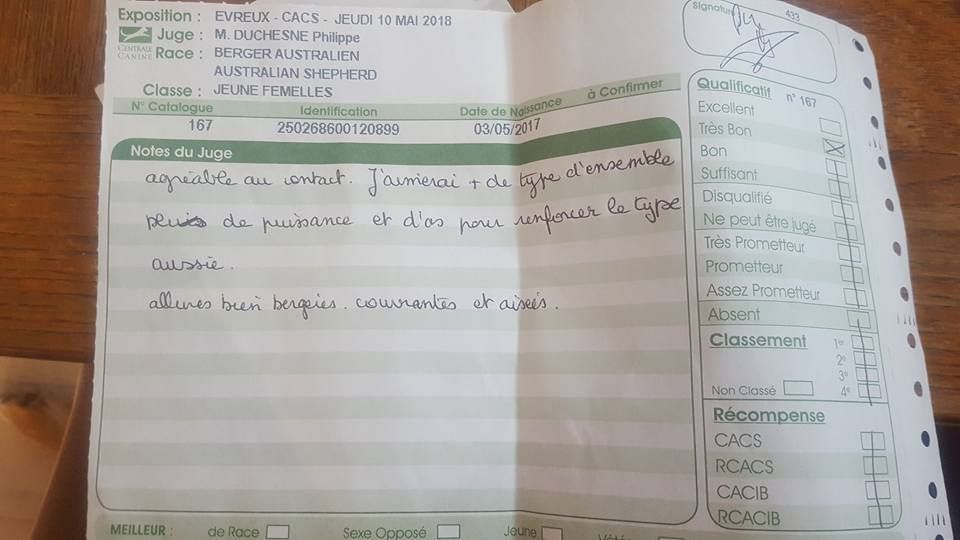 Exposition : EVREUX - CACS - JEUDI 10 MAI 2018
Juge : M. DUCHESNE Philippe
CENTRALE CANINE
Race : BERGER AUSTRALIEN
AUSTRALIAN SHEPHERD
Classe : JEUNE FEMELLES
N° Catalogue Identification Date de Naissance à Confirmer
167 250268600120899 03/05/2017
Notes du Juge
agréable au contact. J'aimerai + de type d'ensemble
de puissance et d'os pour renforcer le type
aussie.
allures bien bergeies. courantes et aisées.
Signature
433
Qualificatif n° 167
Excellent
Très Bon
Bon
Suffisant
Disqualifié
Ne peut être jugé
Très Prometteur
Prometteur
Assez Prometteur
Absent
Classement 1er
2e
3e
Non Classé 4e
Récompense
CACS
RCACS
CACIB
RCACIB
MEILLEUR : de Race Sexe Opposé Jeune